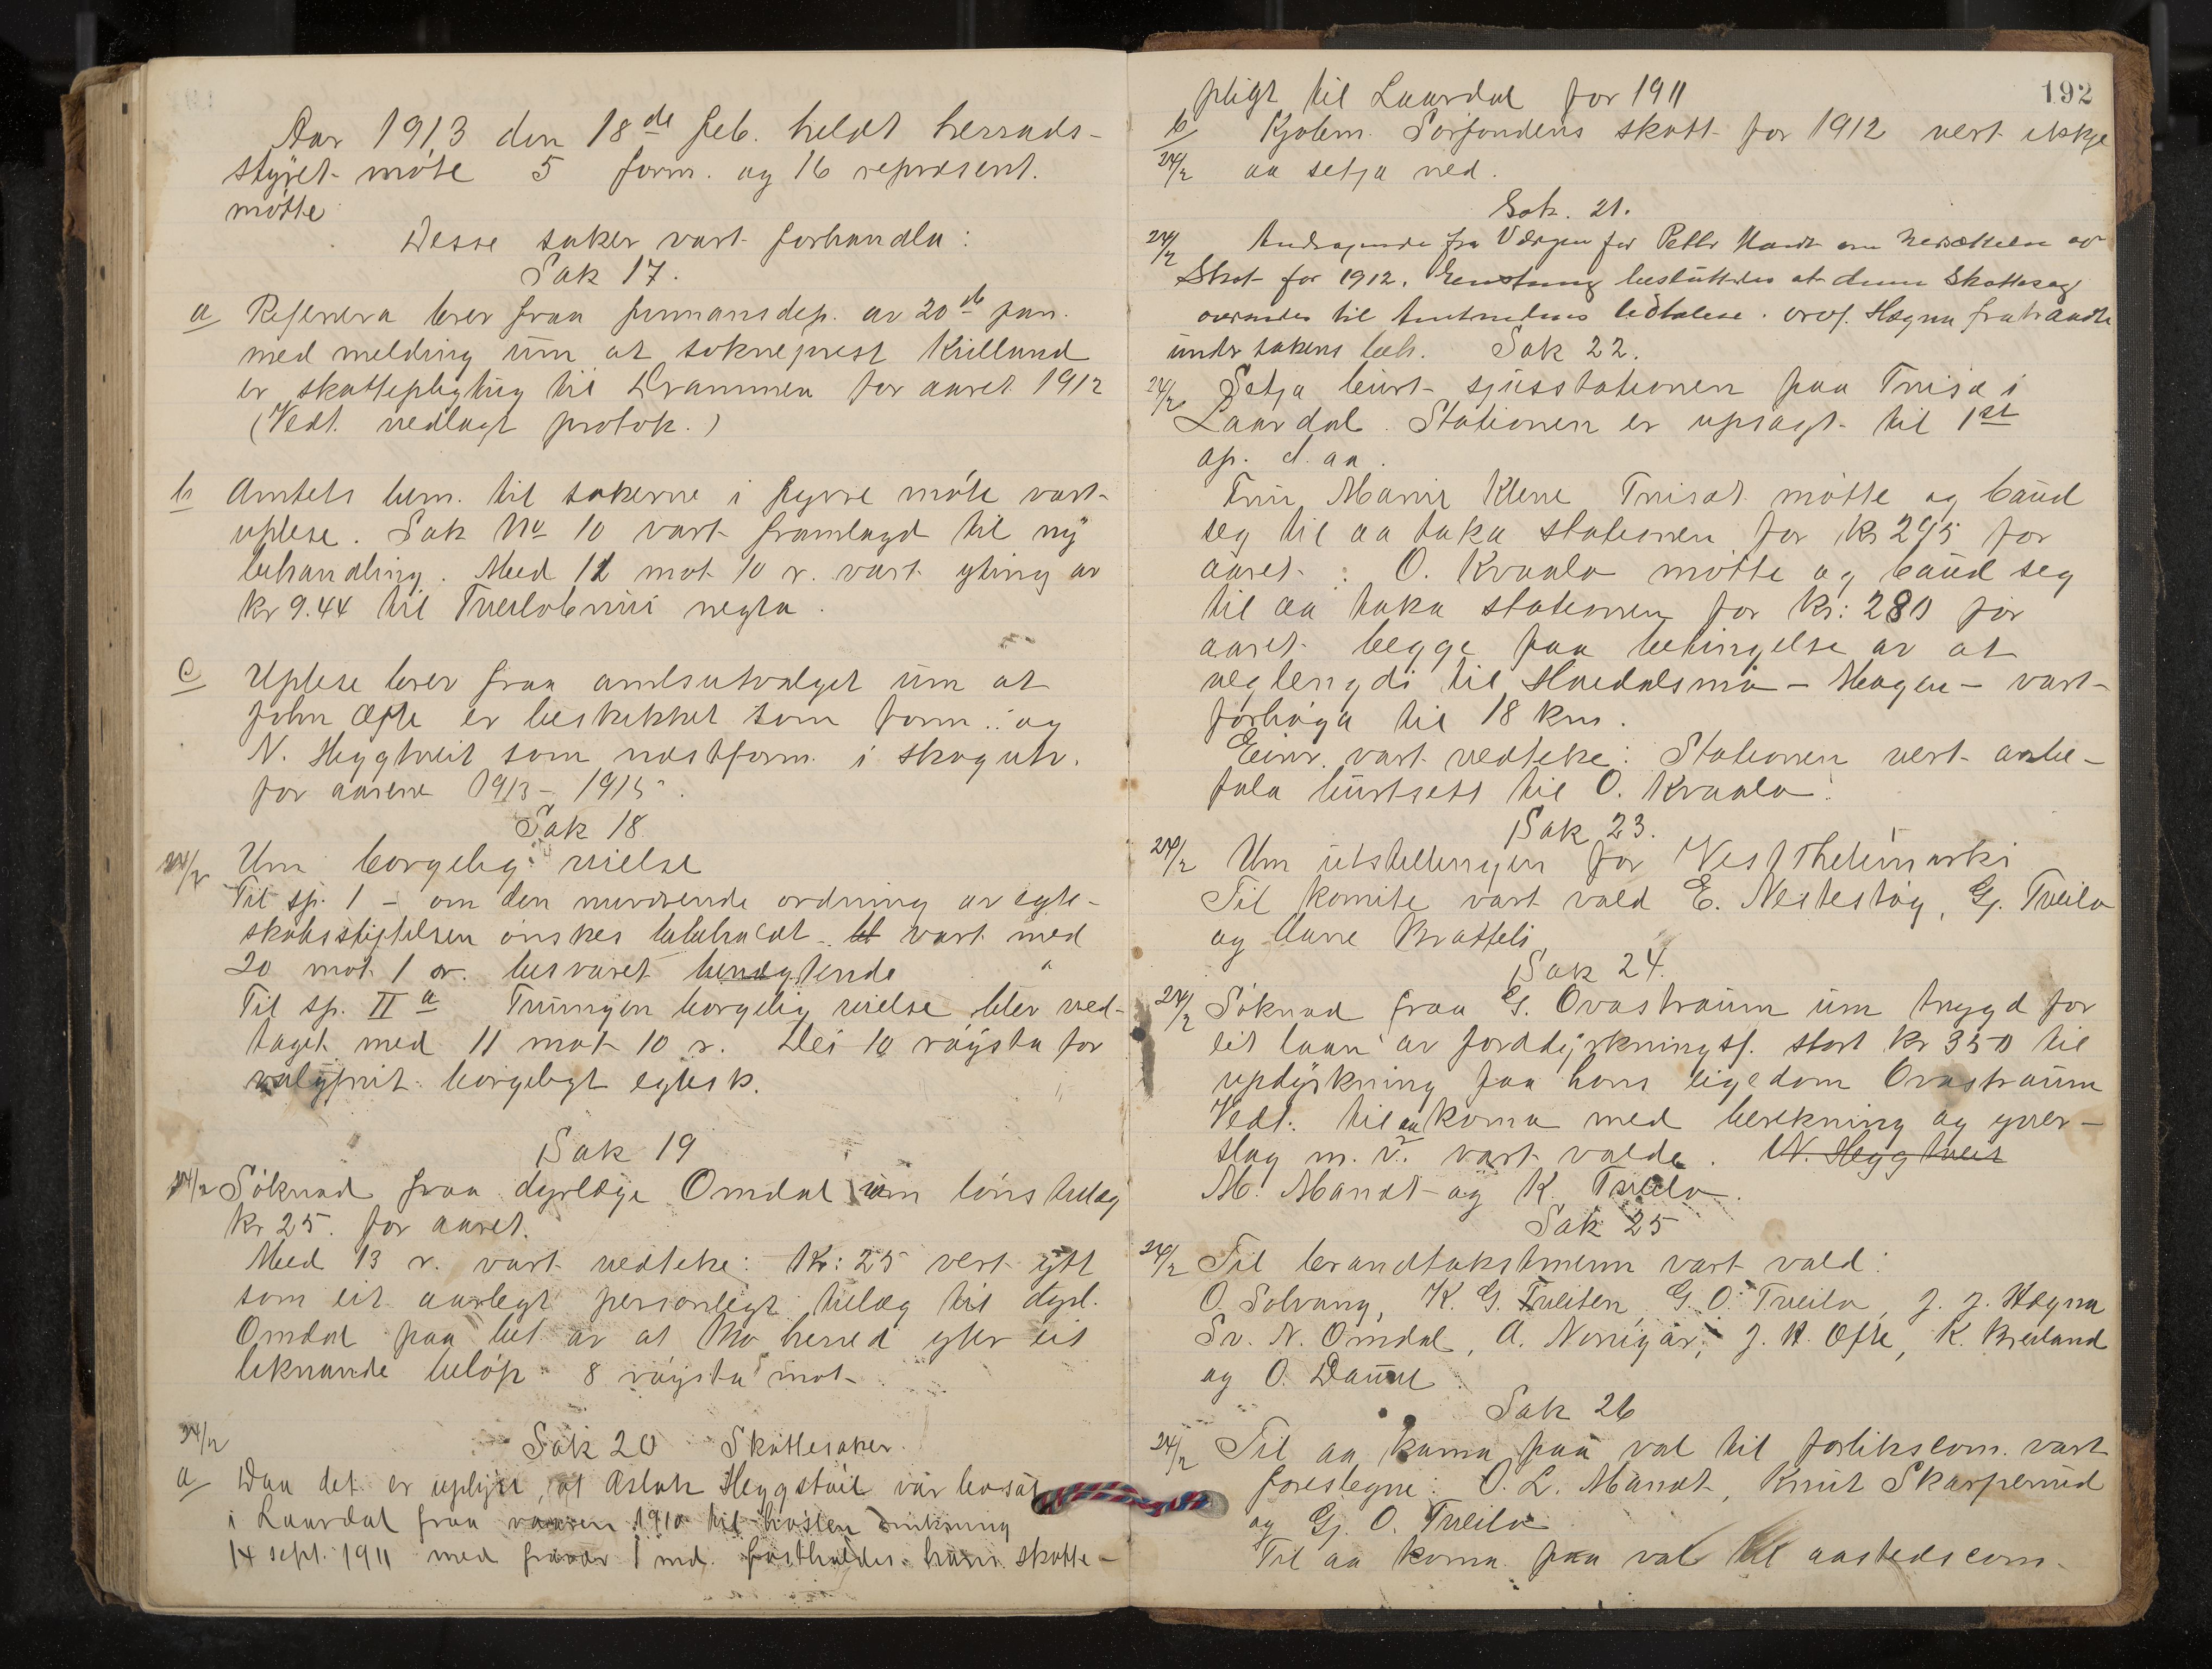 Aar 1913 den 18de feb. heldt herads-
styret møte 5 form. og 16 represent.
møtte
Desse saker vart forhandla:
Sak 17.
a Referera brev fraa finansdep. av 20de jan.
med melding um at sokneprest Kielland
er skattepligtig til Drammen for aaret 1912
(Vedt. vedlagt protok.)
b Amtets bem. til sakerne i fyrre møte vart
uplese. Sak No 10 vart framlagd til ny
behandling. Med 11 mot 10 r. vart yting av
kr 9.44 til negta.
c Uplese brev fraa amtsutvalget um at
John Øfte er beskikket som form. og
N. Heggtveit som næstform. i skogutv.
for aarene 1913-1915.
Sak 18
24/2 Um borgelig vielse
Til sp. 1 - om den nuværende ordning av egte-
skabsstiftelsen ønskes bibeholdt - vart med
20 mot 1 r. besvaret benegtende
Til sp. II a Tvungen borgelig vielse blev ved-
taget med 11 mot 10 r. Dei 10 røysta for
valgfrit borgeligt egtesk.
Sak 19
24/2 Søknad fraa dyrlæge Omdal um lønstillæg
kr 25. for aaret.
Med 13 r. vart vedteke: Kr: 25 vert ytt
som eit aarlegt personlegt tillæg til dyrl.
Omdal paa vet av at Mo herred yter eit
liknande beløp. 8 røysta mot.
24/2 Sak 20 Skattesaker.
a Daa det er uplyst, at Aslak Heggstøil var bosat
i Laardal fraa vaaren 1910 til høsten omkring
14 sept. 1911 med fråvær 1 md. fastholdes hans skatte-
192
pligt til Laardal for 1911
b Kjølem. Sorfondens skatt for 1912 vert ikkje
24/2 aa setja ned.
Sak. 21.
24/2 Andragende fra Værgen for Petter Mandt om nedsættelse av
Skat for 1912. Enstemmig besluttedes at denne Skattesag
oversendes til Amtmandens Udtalelse. Ordf. Hægna fratraadte
under sakens beh. Sak 22.
24/2 Setja burt sjusstationen paa Triset i
Laardal. Stationen er upsagt til 1st
ap. d. aa.
Fru Marie Klene Triset møtte og baud
seg til aa taka stationen for kr 295 for
aaret. O. Kvaalo møtte og baud seg
til aa taka stationen for kr: 280 for
aaret. begge paa betingelse av at
veglengdi til Høidalsmo - Hagen - vart
forhøga til 18 km.
Einr. vart vedteke: Stationen vert anbe-
fala burtsett til O. Kvaalo.
Sak 23.
24/2 Um utstellingen for Vest Thelemarki
Til komite vart vald E. Nestestog, Gj. Tveito
og Aanne Bratteli
Sak 24.
24/2 Søknad fraa G. Ovastraum um trygd for
eit laan av jorddyrkningsf. stort kr 350 til
updyrkning paa hans eigedom Ovastraum
Vedt. til aa koma med berekning og yver-
slag m. v. vart valde. N. Heggtveit
M. Mandt og K. Tveito.
Sak 25
24/2 Til brandtakstmenn vart vald:
O. Solvang, K. G. Tveiten, G. O. Tveito, J. J. Hægna
Sv. N. Omdal, A. Norigar, J. H. Øfte, K. Breiland
og O. Daurel.
Sak 26
24/2 Til aa koma paa val til forlikscom. vart
foreslegne: O. L. Mandt, Knut Skarperud
og Gj. O. Tveito
Til aa koma paa val til aastedscom-